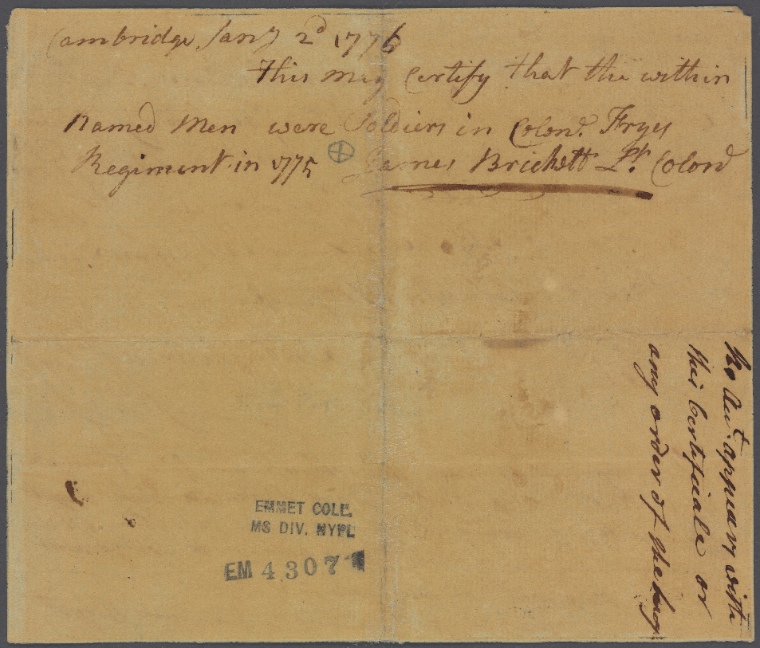 Cambridge Jany 2d 1776
This may Certify that the within
Named Men were Soldiers in Colonl. Fryes
Regiment in 1775 James Brickett Lt. Colonl
No Acct. appears with
this Certificate or
any order of
EMMET COLL.
MS DIV. NYPL
EM 4307